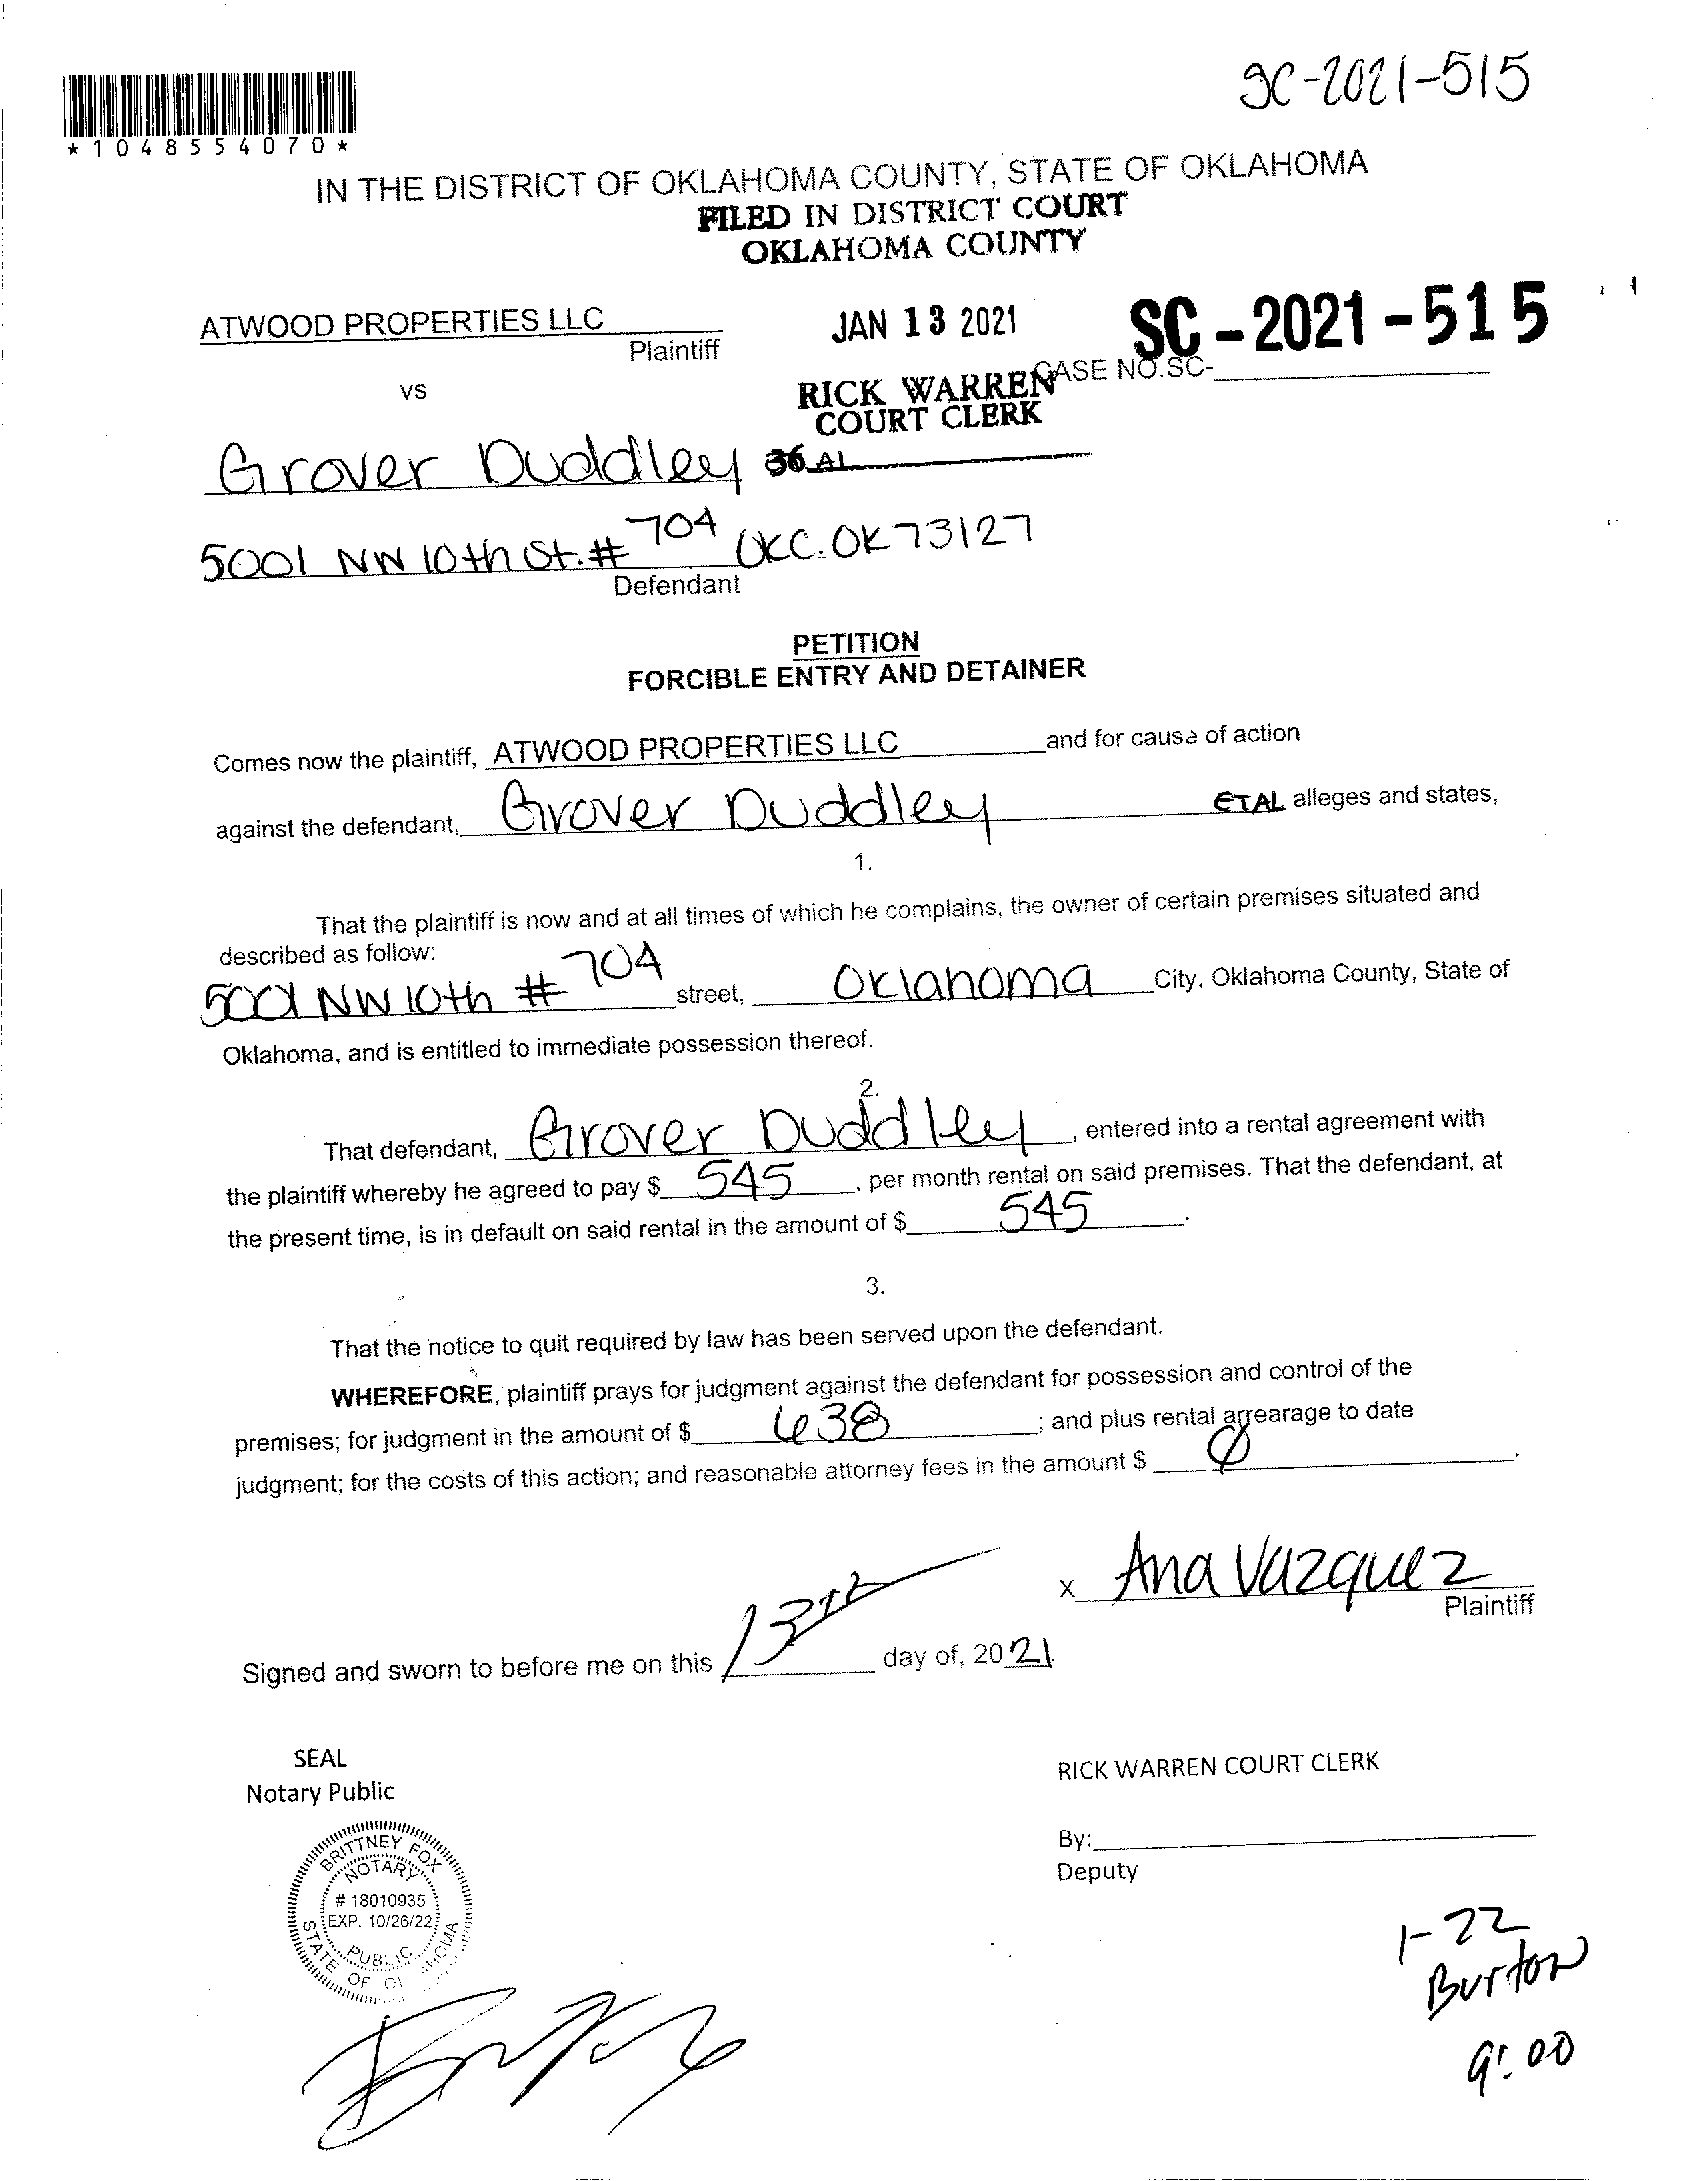 SC-2021-515
*1048554070*
IN THE DISTRICT OF OKLAHOMA COUNTY, STATE OF OKLAHOMA
FILED IN DISTRICT COURT
OKLAHOMA COUNTY
ATWOOD PROPERTIES LLC
Plaintiff
JAN 13 2021
SC-2021-515
vs
RICK WARREN
CASE NO.SC-
COURT CLERK
Grover Duddley
36
5001 NW 10th St. # 704 OKC. OK 73127
Defendant
PETITION
FORCIBLE ENTRY AND DETAINER
Comes now the plaintiff, ATWOOD PROPERTIES LLC and for cause of action
against the defendant, Grover Duddley ETAL alleges and states,
1.
That the plaintiff is now and at all times of which he complains, the owner of certain premises situated and
described as follow:
5001 NW 10th # 704 street, Oklahoma City, Oklahoma County, State of
Oklahoma, and is entitled to immediate possession thereof.
2.
That defendant, Grover Duddley, entered into a rental agreement with
the plaintiff whereby he agreed to pay $ 545, per month rental on said premises. That the defendant, at
the present time, is in default on said rental in the amount of $ 545.
3.
That the notice to quit required by law has been served upon the defendant.
WHEREFORE, plaintiff prays for judgment against the defendant for possession and control of the
premises; for judgment in the amount of $ 638; and plus rental arrearage to date
judgment; for the costs of this action; and reasonable attorney fees in the amount $ Ø.
x Ana Vazquez
Plaintiff
Signed and sworn to before me on this 13th day of, 2021.
SEAL
Notary Public
RICK WARREN COURT CLERK
By:
Deputy
BRITTNEY FOX
NOTARY
# 18010935
EXP. 10/26/22
PUBLIC
STATE OF
1-22
Burton
9:00